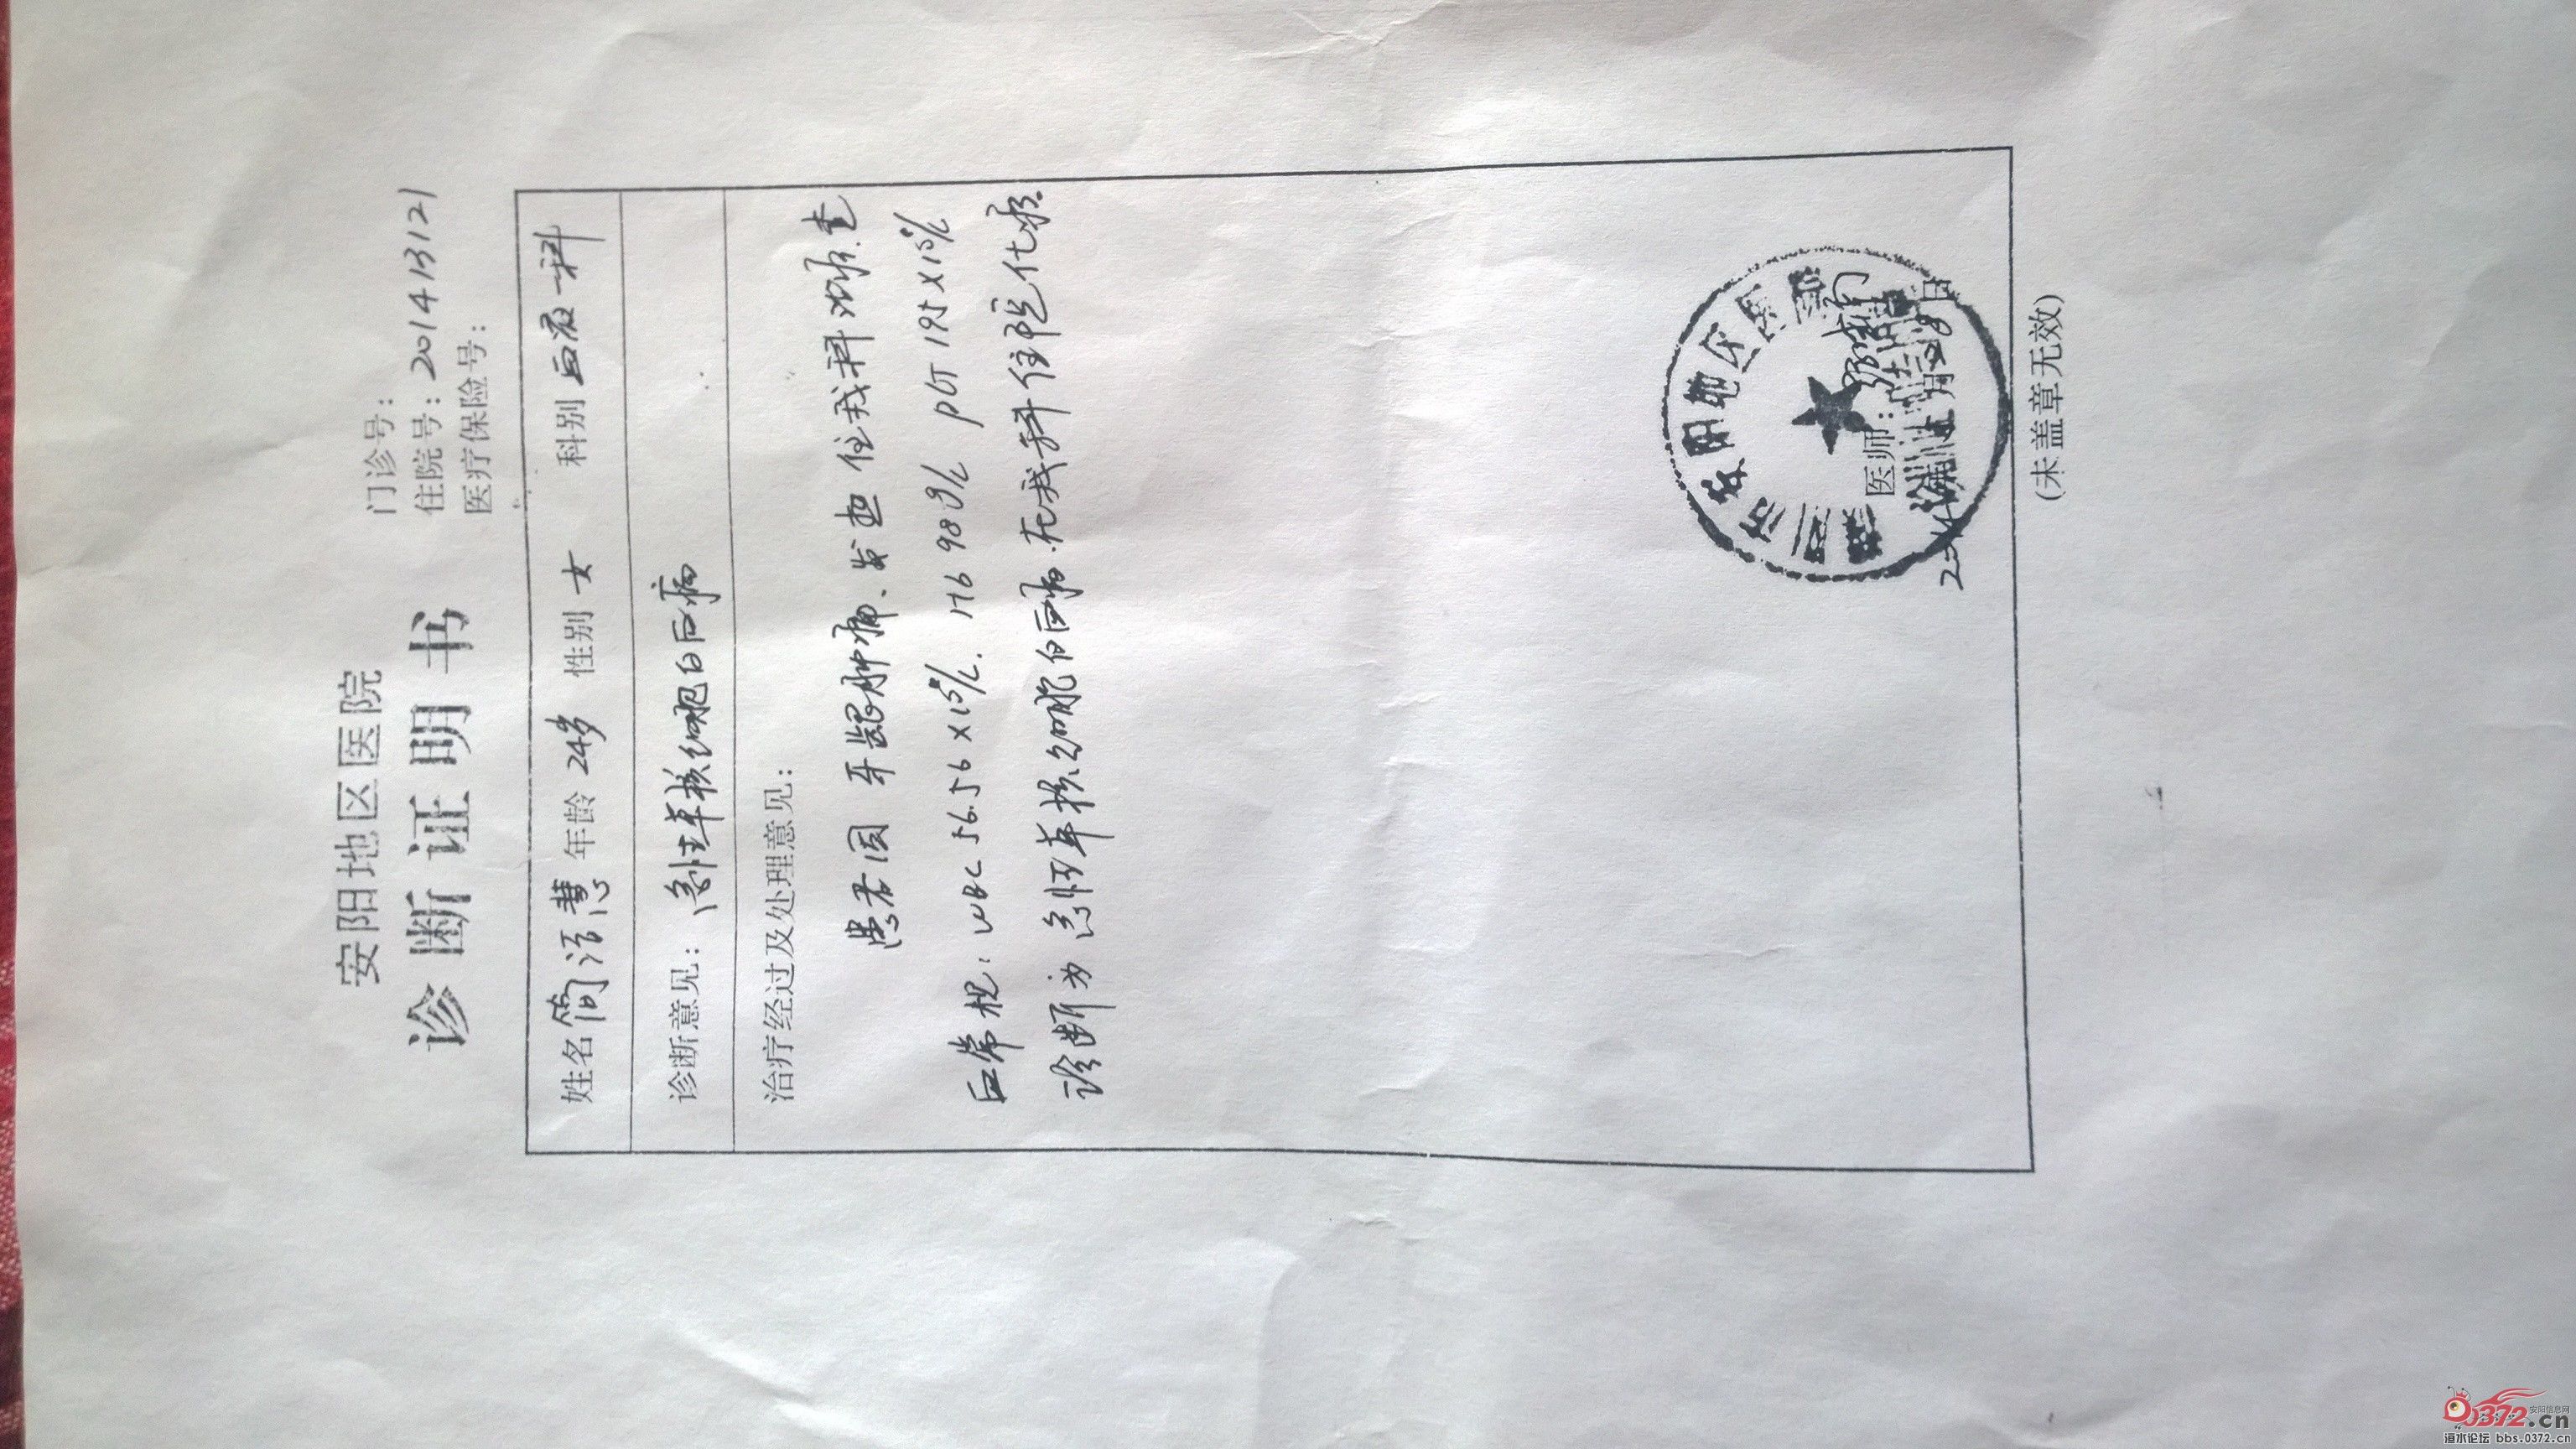 安阳地区医院
诊断证明书
门诊号：
住院号：201413121
医疗保险号：
姓名 简洁慧 年龄 24岁 性别 女 科别 血液一科
诊断意见： 急性单核细胞白血病
治疗经过及处理意见：
患者因牙龈肿痛、发热住我科治疗.查
血常规：WBC 56.56×10⁹/L. Hb 98g/L PLT 195×10⁹/L
诊断为急性单核细胞白血病.在我科住院化疗.
安阳地区医院
医师：
月 日
(未盖章无效)
0372.cn
安阳信息网
洹水论坛 bbs.0372.cn